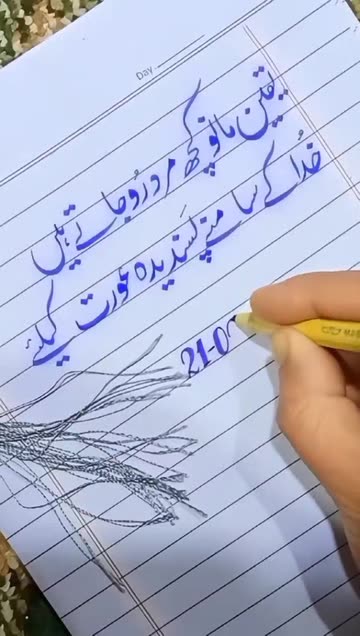 Day
یقین مانو کچھ مرد رو جاتے ہیں
خدُا کے سامنے پسَندیدہ عورت کیلئے
21-0